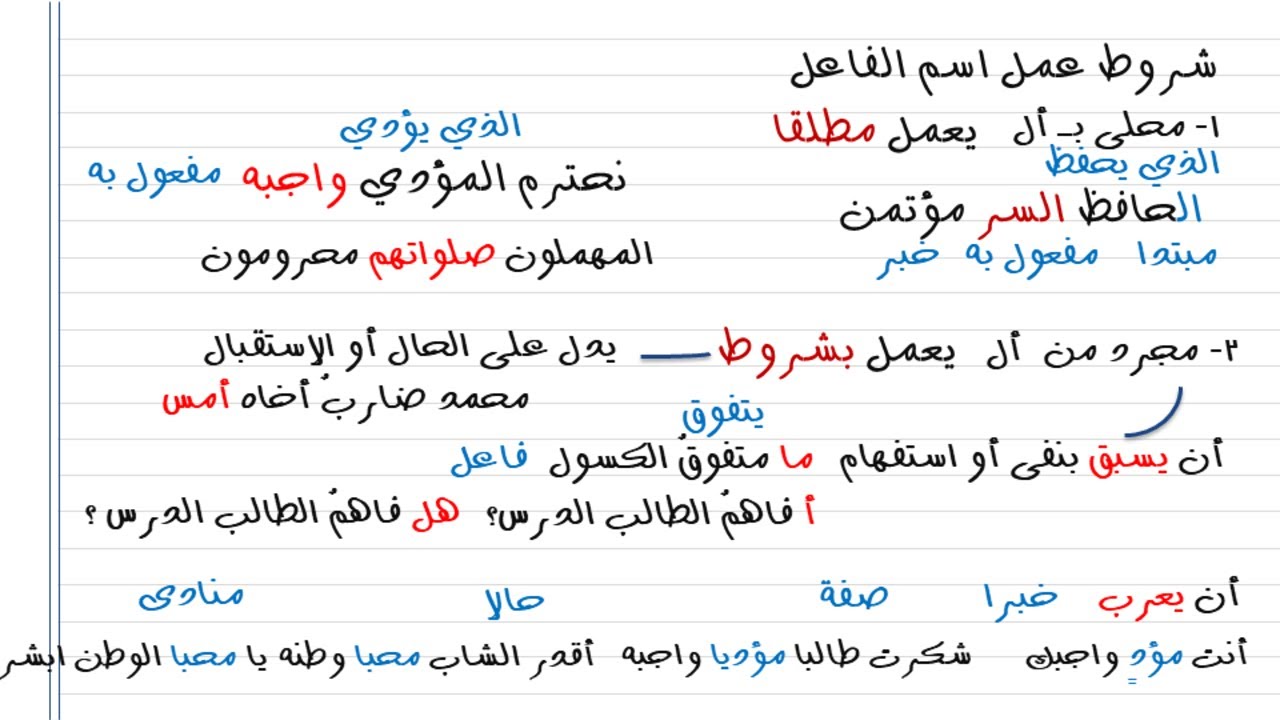 شروط عمل اسم الفاعل
١- محلى بـ أل يعمل مطلقا
الذي يؤدي
الذي يحفظ
نحترم المؤدي واجبه مفعول به
الحافظ السر مؤتمن
مبتدا مفعول به خبر
المهملون صلواتهم محرومون
٢- مجرد من أل يعمل بشروط يدل على الحال أو الإستقبال
محمد ضاربٌ أخاه أمس
يتفوق
أن يسبق بنفى أو استفهام ما متفوقٌ الكسول فاعل
أ فاهمٌ الطالب الدرس؟ هل فاهمٌ الطالب الدرس ؟
أن يعرب خبرا صفة حالا منادى
أنت مؤدٍ واجبك شكرت طالبا مؤديا واجبه أقدر الشاب محبا وطنه يا محبا الوطن ابشر